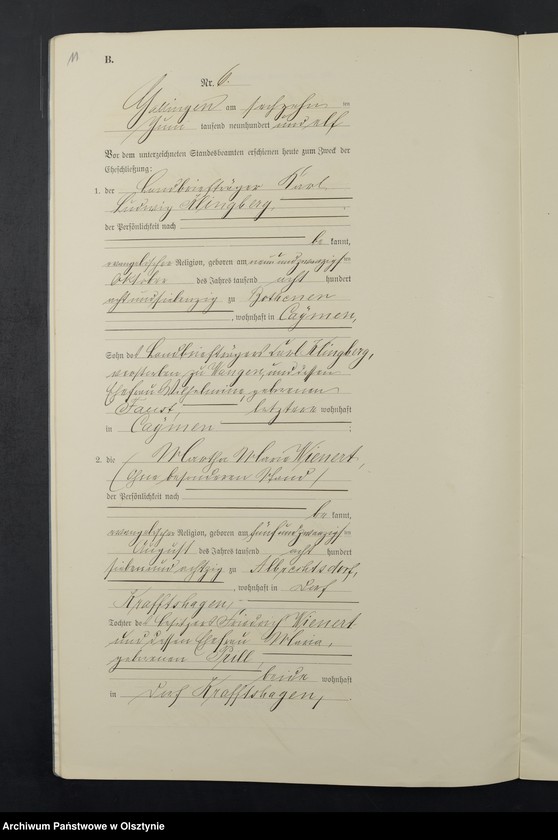 11
B.
Nr. 6.
Gallingen am sechzehnten
Juni tausend neunhundert und elf
Vor dem unterzeichneten Standesbeamten erschienen heute zum Zweck der
Eheschließung:
1. der Landbriefträger Karl
Ludwig Klingberg,
der Persönlichkeit nach
be kannt,
evangelischer Religion, geboren am neunundzwanzigsten
Oktober des Jahres tausend acht hundert
achtundsiebenzig zu Bothenen
, wohnhaft in Caymen,
Sohn des Landbriefträgers Karl Klingberg,
verstorben zu Wangen, und dessen
Ehefrau Wilhelmine geborenen
Faust, letztere wohnhaft
in Caymen ;
2. die Martha Maria Wienert,
(Ohne besonderen Stand)
der Persönlichkeit nach
be kannt,
evangelischer Religion, geboren am fünfundzwanzigsten
August des Jahres tausend acht hundert
siebenundachtzig zu Albrechtsdorf,
, wohnhaft in Dorf
Krafftshagen,
Tochter des Besitzers Friedrich Wienert
und dessen Ehefrau Maria,
geborenen Pill,
beide wohnhaft
in Dorf Krafftshagen,
Archiwum Państwowe w Olsztynie